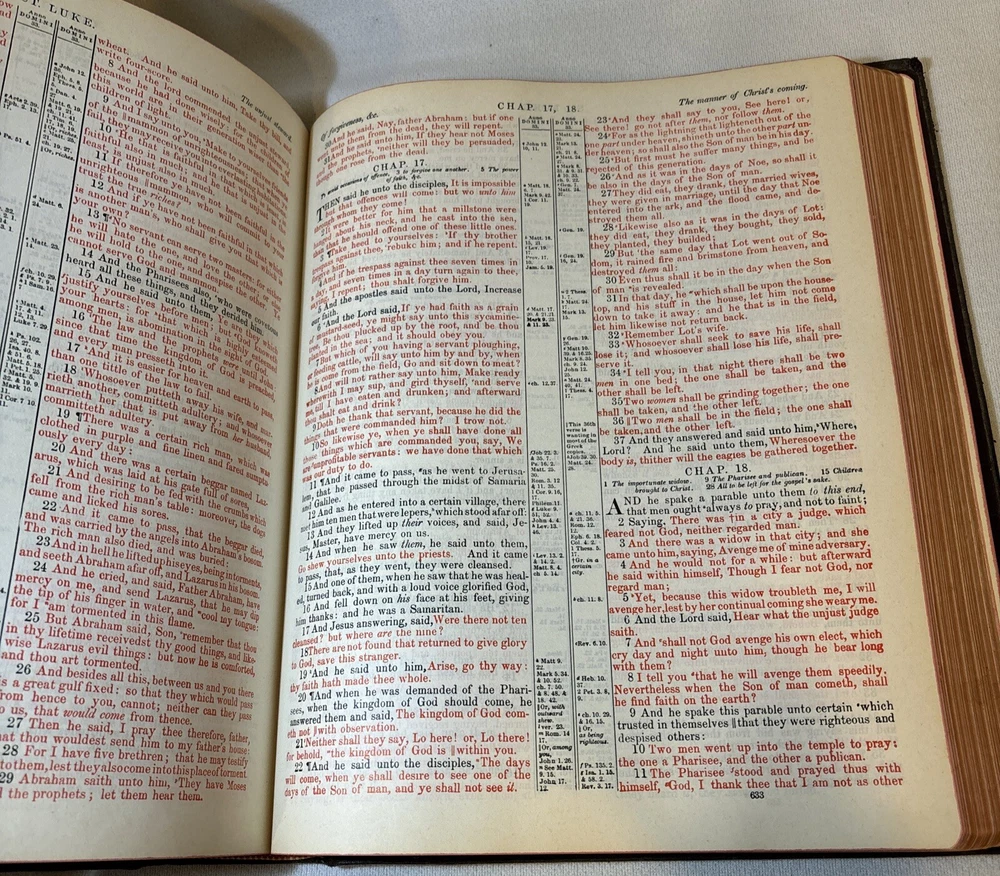 ST. LUKE.
The unjust steward.
Anno
DOMINI
33.
Anno
DOMINI
33.
wheat. And he said unto him, Take thy bill, and
write four-score.
8 And the lord commended the unjust steward,
because he had done wisely: for the children of
this world are in their generation wiser than the
children of light.
9 And I say unto you, Make to yourselves friends
of the mammon of unrighteousness; that, when ye
fail, they may receive you into everlasting
10 He that is faithful in that which is least, is
faithful also in much: and he that is unjust in the
least, is unjust also in much.
11 If therefore ye have not been faithful in the
unrighteous mammon, who will commit to your
trust the true riches?
12 And if ye have not been faithful in that which
is another man's, who shall give you that which is
your own?
13 ¶ No servant can serve two masters: for either
he will hate the one, and love the other; or else
he will hold to the one, and despise the other. Ye
cannot serve God and mammon.
14 And the Pharisees also, who were covetous,
heard all these things; and they derided him.
15 And he said unto them, Ye are they which
justify yourselves before men; but God knoweth
your hearts: for that which is highly esteemed
among men, is abomination in the sight of God.
16 The law and the prophets were until John:
since that time the kingdom of God is preached,
and every man presseth into it.
17 And it is easier for heaven and earth to pass,
than one tittle of the law to fail.
18 Whosoever putteth away his wife, and mar-
rieth another, committeth adultery; and whosoever
marrieth her that is put away from her husband,
committeth adultery.
19 ¶ There was a certain rich man, which was
clothed in purple and fine linen and fared sumptu-
ously every day:
20 And there was a certain beggar named Laz-
arus, which was laid at his gate full of sores,
21 And desiring to be fed with the crumbs which
fell from the rich man's table: moreover, the dogs
came and licked his sores.
22 And it came to pass, that the beggar died,
and was carried by the angels into Abraham's bosom.
The rich man also died, and was buried:
23 And in hell he lifted up his eyes, being in torments,
and seeth Abraham afar off, and Lazarus in his bosom.
24 And he cried, and said, Father Abraham, have
mercy on me, and send Lazarus, that he may dip
the tip of his finger in water, and cool my tongue:
for I am tormented in this flame.
25 But Abraham said, Son, remember that thou
in thy lifetime receivedst thy good things, and like-
wise Lazarus evil things: but now he is comforted,
and thou art tormented.
26 And besides all this, between us and you there
is a great gulf fixed: so that they which would pass
from hence to you, cannot; neither can they pass
to us, that would come from thence.
27 Then he said, I pray thee therefore, father,
that thou wouldest send him to my father's house:
28 For I have five brethren; that he may testify
unto them, lest they also come into this place of torment.
29 Abraham saith unto him, They have Moses
and the prophets; let them hear them.
Of forgiveness, &c.
CHAP. 17, 18.
The manner of Christ's coming.
30 And he said, Nay, father Abraham: but if one
went unto them from the dead, they will repent.
31 And he said unto him, If they hear not Moses
and the prophets, neither will they be persuaded,
though one rose from the dead.
CHAP. 17.
3 to forgive one another. 5 The power
of faith, &c.
THEN said he unto the disciples, It is impossible
but that offences will come: but wo unto him
through whom they come!
2 It were better for him that a millstone were
hanged about his neck, and he cast into the sea,
than that he should offend one of these little ones.
3 ¶ Take heed to yourselves: If thy brother
trespass against thee, rebuke him; and if he repent,
forgive him.
4 And if he trespass against thee seven times in
a day, and seven times in a day turn again to thee,
saying, I repent; thou shalt forgive him.
5 And the apostles said unto the Lord, Increase
our faith.
6 And the Lord said, If ye had faith as a grain
of mustard-seed, ye might say unto this sycamine-
tree, Be thou plucked up by the root, and be thou
planted in the sea; and it should obey you.
7 But which of you having a servant ploughing,
or feeding cattle, will say unto him by and by, when
he is come from the field, Go and sit down to meat?
8 And will not rather say unto him, Make ready
wherewith I may sup, and gird thyself, and serve
me, till I have eaten and drunken; and afterward
thou shalt eat and drink?
9 Doth he thank that servant, because he did the
things that were commanded him? I trow not.
10 So likewise ye, when ye shall have done all
those things which are commanded you, say, We
are unprofitable servants: we have done that which
was our duty to do.
11 ¶ And it came to pass, as he went to Jerusa-
lem, that he passed through the midst of Samaria
and Galilee.
12 And as he entered into a certain village, there
met him ten men that were lepers, which stood afar off:
13 And they lifted up their voices, and said, Je-
sus, Master, have mercy on us.
14 And when he saw them, he said unto them,
Go shew yourselves unto the priests. And it came
to pass, that, as they went, they were cleansed.
15 And one of them, when he saw that he was heal-
ed, turned back, and with a loud voice glorified God,
16 And fell down on his face at his feet, giving
him thanks: and he was a Samaritan.
17 And Jesus answering, said, Were there not ten
cleansed? but where are the nine?
18 There are not found that returned to give glory
to God, save this stranger.
19 And he said unto him, Arise, go thy way:
thy faith hath made thee whole.
20 ¶ And when he was demanded of the Phari-
sees, when the kingdom of God should come, he
answered them and said, The kingdom of God com-
eth not ‖with observation.
21 Neither shall they say, Lo here! or, Lo there!
for behold, the kingdom of God is ‖within you.
22 ¶ And he said unto the disciples, The days
will come, when ye shall desire to see one of the
days of the Son of man, and ye shall not see it.
Anno
DOMINI
33.
Anno
DOMINI
33.
ch. 12.37.
‖This 36th
verse is
wanting in
most of the
Greek
copies.
ch. 11. 8.
Rev. 6. 10.
‖Or, with
outward
shew.
‖Or, among
you,
John 1. 26.
‖Or,
as being
righteous.
23 And they say to you, See here! or,
See there! go not after them, nor follow them.
24 For as the lightning that lighteneth out of the
one part under heaven, shineth unto the other part un-
der heaven; so shall also the Son of man be in his day.
25 But first must he suffer many things, and be
rejected of this generation.
26 And as it was in the days of Noe, so shall it
be also in the days of the Son of man.
27 They did eat, they drank, they married wives,
they were given in marriage, until the day that Noe
entered into the ark, and the flood came, and de-
stroyed them all.
28 Likewise also as it was in the days of Lot:
they did eat, they drank, they bought, they sold,
they planted, they builded;
29 But the same day that Lot went out of So-
dom, it rained fire and brimstone from heaven, and
destroyed them all:
30 Even thus shall it be in the day when the Son
of man is revealed.
31 In that day, he which shall be upon the house-
top, and his stuff in the house, let him not come
down to take it away: and he that is in the field,
let him likewise not return back.
32 Remember Lot's wife.
33 Whosoever shall seek to save his life, shall
lose it; and whosoever shall lose his life, shall pre-
serve it.
34 I tell you, in that night there shall be two
men in one bed; the one shall be taken, and the
other shall be left.
35 Two women shall be grinding together; the one
shall be taken, and the other left.
36 ‖Two men shall be in the field; the one shall
be taken, and the other left.
37 And they answered and said unto him, Where,
Lord? And he said unto them, Wheresoever the
body is, thither will the eagles be gathered together.
CHAP. 18.
1 The importunate widow. 9 The Pharisee and publican. 15 Children
brought to Christ. 28 All to be left for the gospel's sake.
AND he spake a parable unto them to this end,
that men ought always to pray, and not to faint;
2 Saying, There was †in a city a judge, which
feared not God, neither regarded man:
3 And there was a widow in that city; and she
came unto him, saying, Avenge me of mine adversary.
4 And he would not for a while: but afterward
he said within himself, Though I fear not God, nor
regard man;
5 Yet, because this widow troubleth me, I will
avenge her, lest by her continual coming she weary me.
6 And the Lord said, Hear what the unjust judge
saith.
7 And shall not God avenge his own elect, which
cry day and night unto him, though he bear long
with them?
8 I tell you that he will avenge them speedily.
Nevertheless when the Son of man cometh, shall
he find faith on the earth?
9 And he spake this parable unto certain which
trusted in themselves ‖that they were righteous and
despised others:
10 Two men went up into the temple to pray;
the one a Pharisee, and the other a publican.
11 The Pharisee stood and prayed thus with
himself, God, I thank thee that I am not as other
633